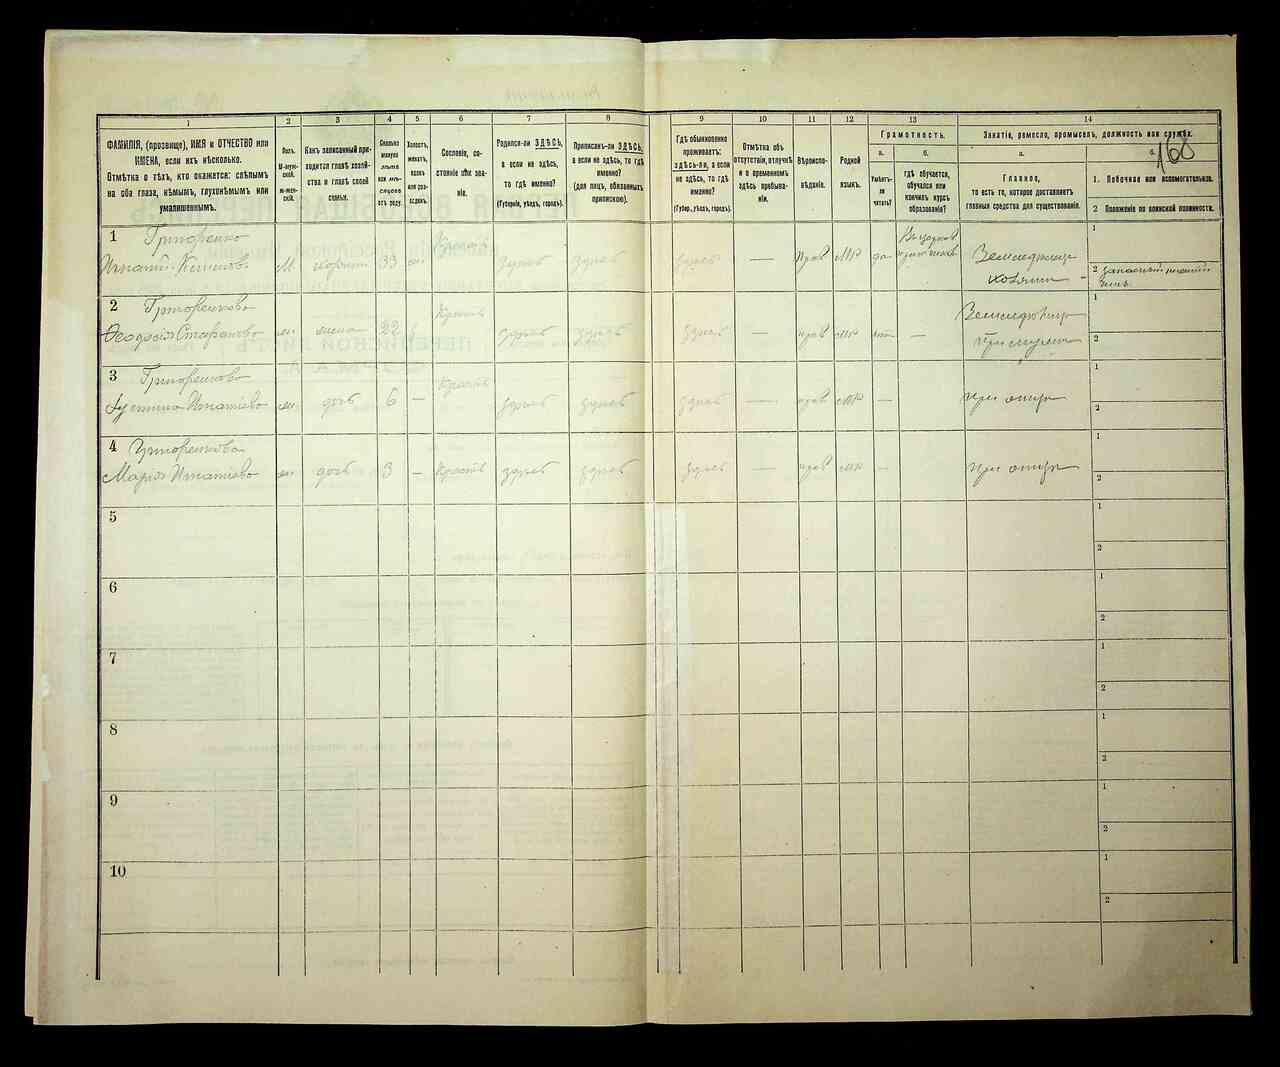 168
1 2 3 4 5 6 7 8 9 10 11 12 13 14
ФАМИЛІЯ, (прозвище), ИМЯ и ОТЧЕСТВО или
ИМЕНА, если ихъ нѣсколько.
Отмѣтка о тѣхъ, кто окажется: слѣпымъ
на оба глаза, нѣмымъ, глухонѣмымъ или
умалишеннымъ.
Полъ.
М-мужской.
Ж-женскій.
Какъ записанный приходится
главѣ хозяйства
и главѣ своей
семьи.
Сколько
минуло
лѣтъ
или мѣсяцевъ
отъ роду.
Холостъ,
женатъ,
вдовъ
или разведенъ.
Сословіе, состояніе
или званіе.
Родился-ли ЗДѢСЬ,
а если не здѣсь,
то гдѣ именно?
(Губернія, уѣздъ, городъ).
Приписанъ-ли ЗДѢСЬ,
а если не здѣсь, то гдѣ
именно?
(для лицъ, обязанныхъ
припискою).
Гдѣ обыкновенно
проживаетъ:
здѣсь-ли, а если
не здѣсь, то гдѣ
именно?
(Губер., уѣздъ, городъ).
Отмѣтка объ
отсутствіи, отлучкѣ
и о временномъ
здѣсь пребываніи.
Вѣроисповѣданіе.
Родной
языкъ.
Грамотность.
а.
Умѣетъ-ли
читать?
б.
гдѣ обучается,
обучался или
кончилъ курсъ
образованія?
Занятіе, ремесло, промыселъ, должность или служба.
а.
Главное,
то есть то, которое доставляетъ
главныя средства для существованія.
б.
1. Побочное или вспомогательное.
2 Положеніе по воинской повинности.
1 Григоренко
Игнатій М хозяинъ 33 здѣсь здѣсь здѣсь — прав мр да
Земледѣлецъ
хозяинъ
1
2 запасный нижній
чинъ
2 Григоренкова
Ѳеодосія Стефанова жена 22 Крест здѣсь здѣсь здѣсь — прав мр нѣт —
Земледѣлецъ
при мужѣ
1
2
3 Григоренкова
Игнатіева дочь 6 — Крест здѣсь здѣсь здѣсь — прав мр — при отцѣ
1
2
4 Григоренкова
Марія Игнатіева дочь 3 — Крест здѣсь здѣсь здѣсь — прав мр — при отцѣ
1
2
5
1
2
6
1
2
7
1
2
8
1
2
9
1
2
10
1
2